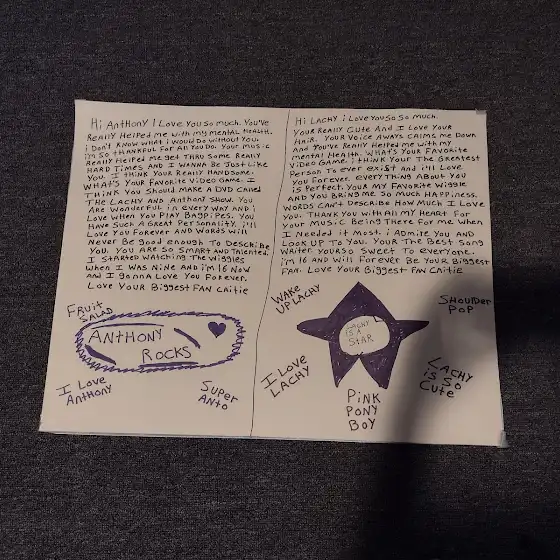 Hi Anthony I Love you so much. You've
Really Helped me with my mental Health.
i Don't know what i would do without you.
i'm so thankful for all you do. Your music
Really Helped me get thru some Really
Hard Times and I wanna be Just Like
You. I think your Really Handsome.
What's your Favorite Video Game. I
Think you should make a DVD called
The Lachy and Anthony show. You
are wonderful in every way and i
Love when you play Bagpipes. You
Have such a Great Personality. i'll
Love you Forever and words will
Never Be good enough to Describe
you. You are so smart and Talented.
I started watching The Wiggles
when I was nine and i'm 16 now
and I gonna Love you Forever.
Love your Biggest Fan Caitie
Fruit
Salad
Anthony
Rocks
I Love
Anthony
Super
Anto
Hi Lachy i Love you so so much.
Your Really Cute And I Love your
Hair. Your Voice always calms me Down
and you've Really Helped me with my
mental Health. What's your Favorite
Video Game. i think your The Greatest
Person to ever exist and i'll Love
you Forever. everything about you
is Perfect. Your my Favorite Wiggle
and you bring me so much Happiness.
Words can't Describe How much I Love
you. Thank you with all my Heart for
your music Being There For me when
I Needed it most. i admire you and
Look up to you. Your The Best song
writer your so sweet to everyone.
i'm 16 and will Forever Be your Biggest
Fan. Love your Biggest Fan Caitie
Wake
up Lachy
Lachy
is a
Star
Shoulder
Pop
I Love
Lachy
Pink
Pony
Boy
Lachy
is so
Cute